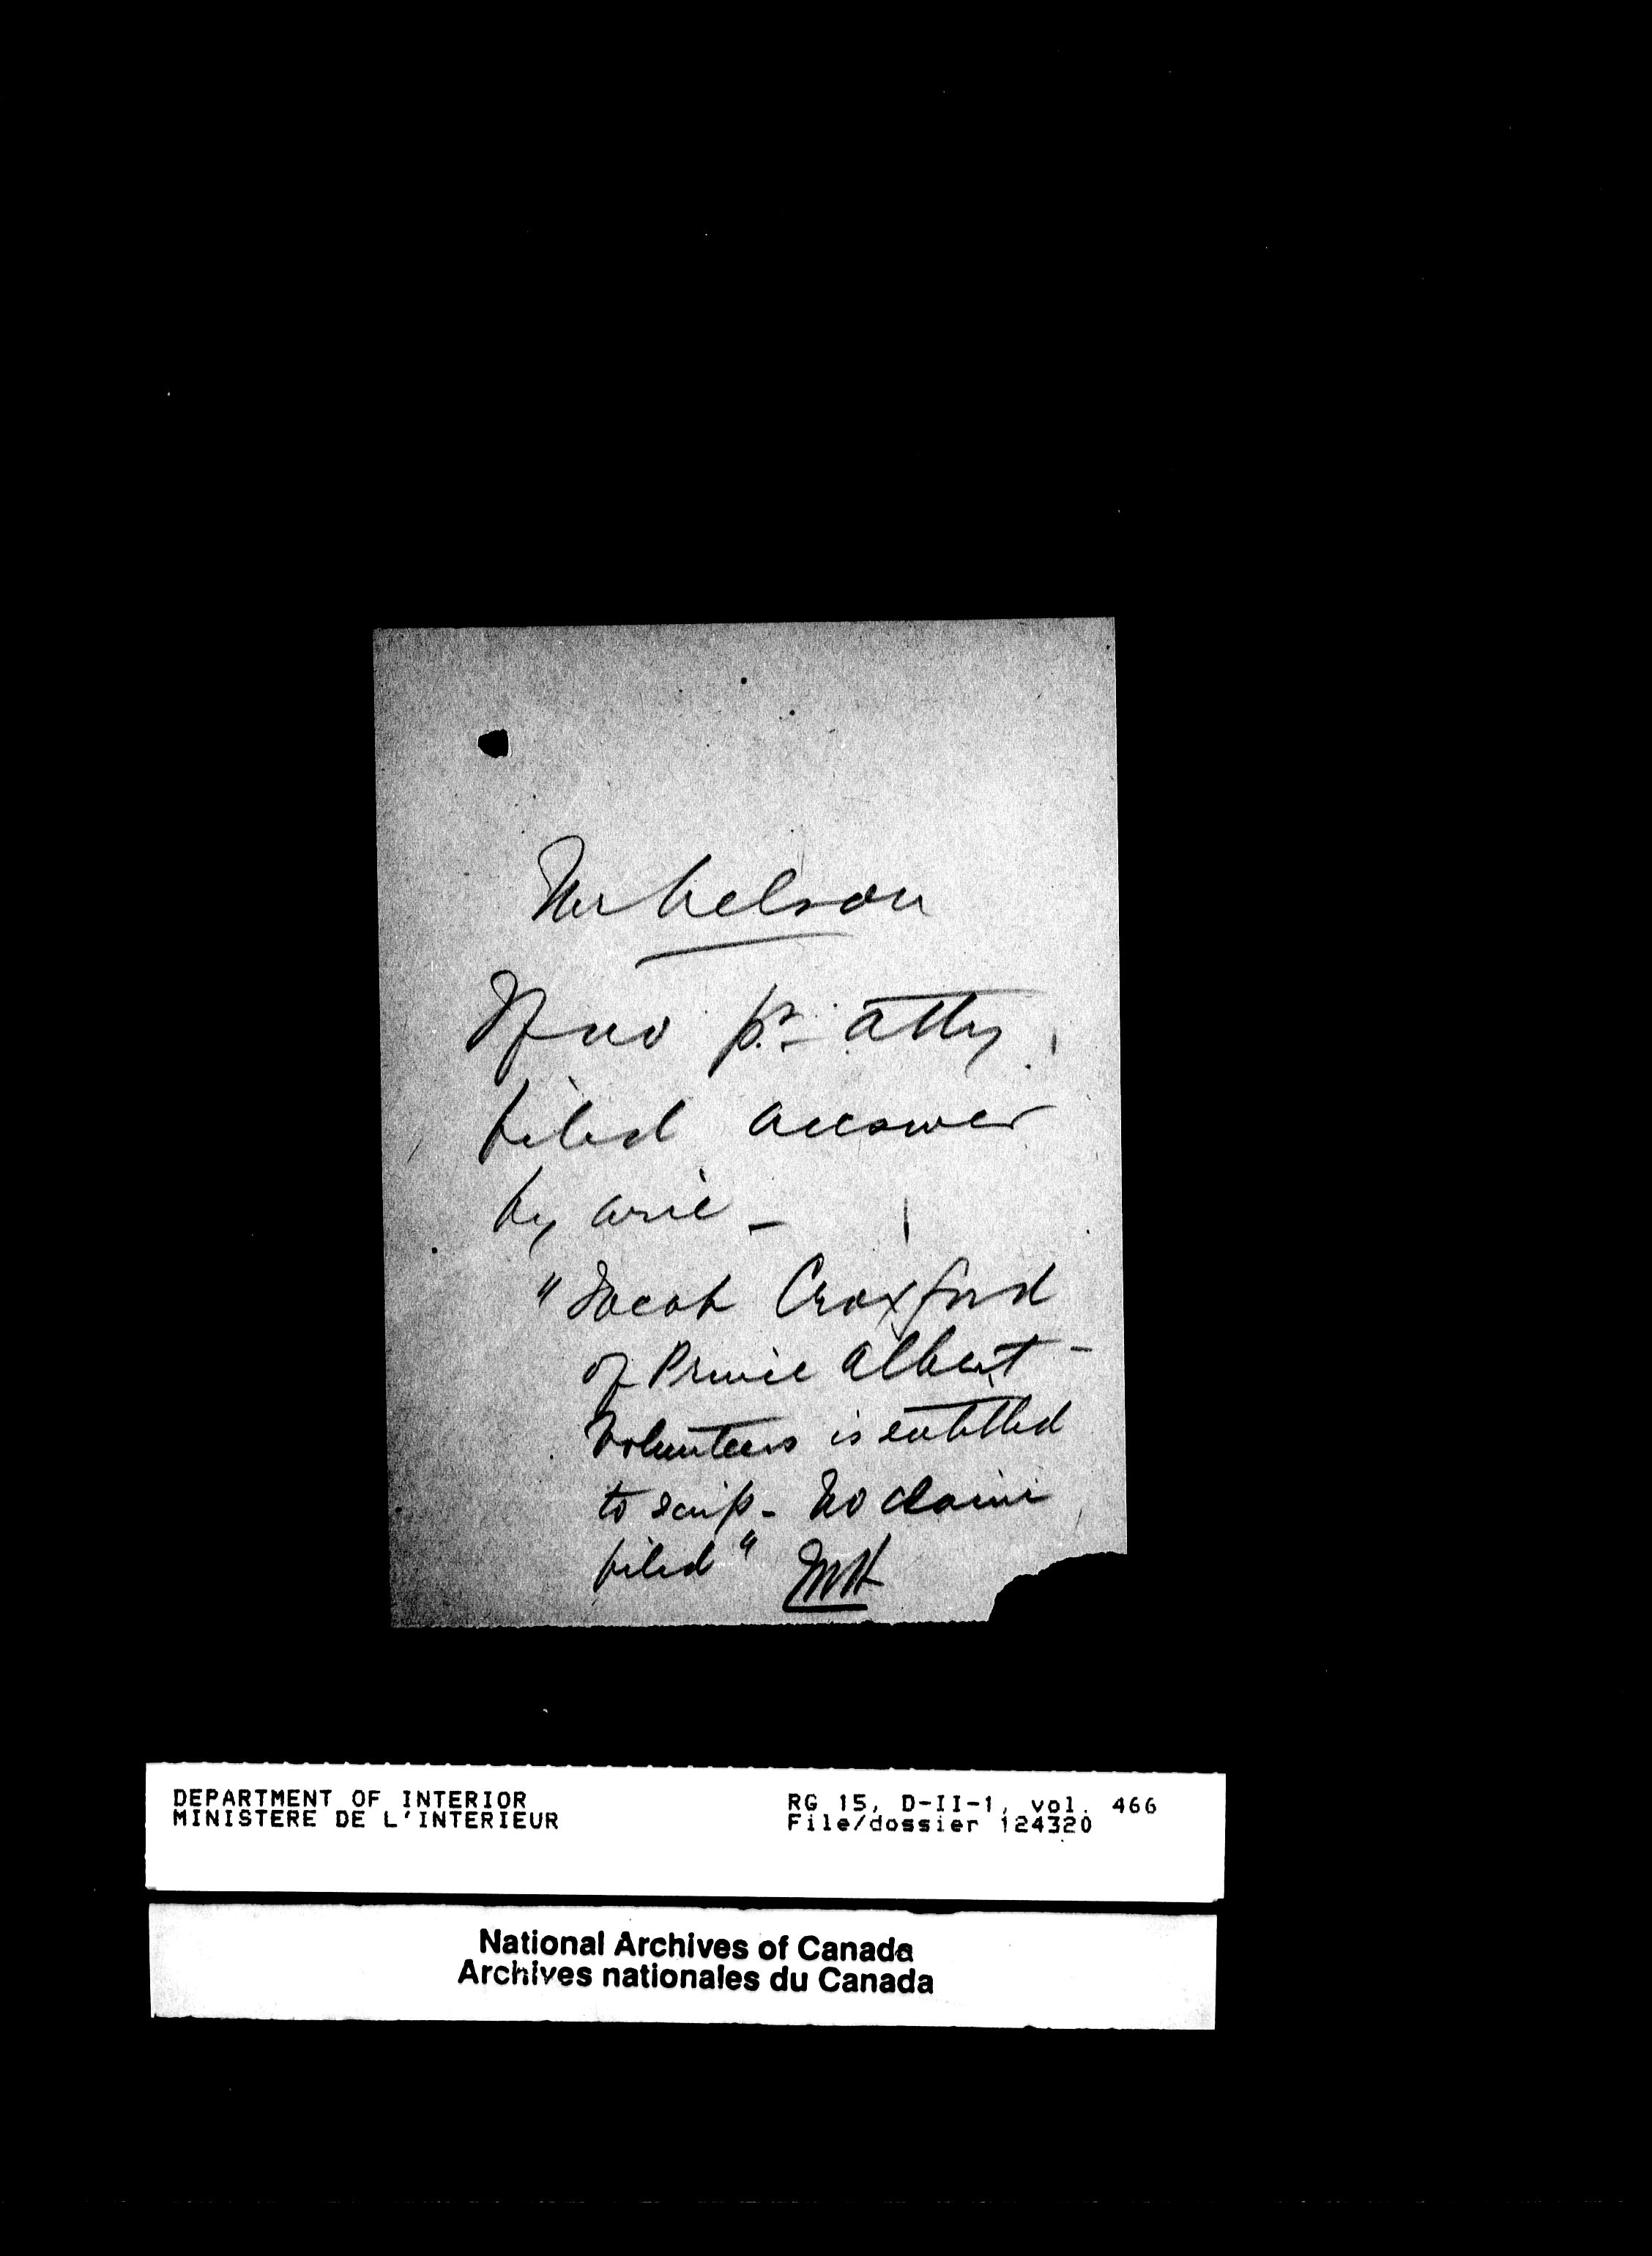 Mr Nelson
If no pr. atty
filed answer
by wire –
"Jacob Croxford
of Prince Albert
Volunteers is entitled
to scrip – No claim
filed"
DEPARTMENT OF INTERIOR
MINISTERE DE L'INTERIEUR
RG 15, D-II-1, vol. 466
File/dossier 124320
National Archives of Canada
Archives nationales du Canada